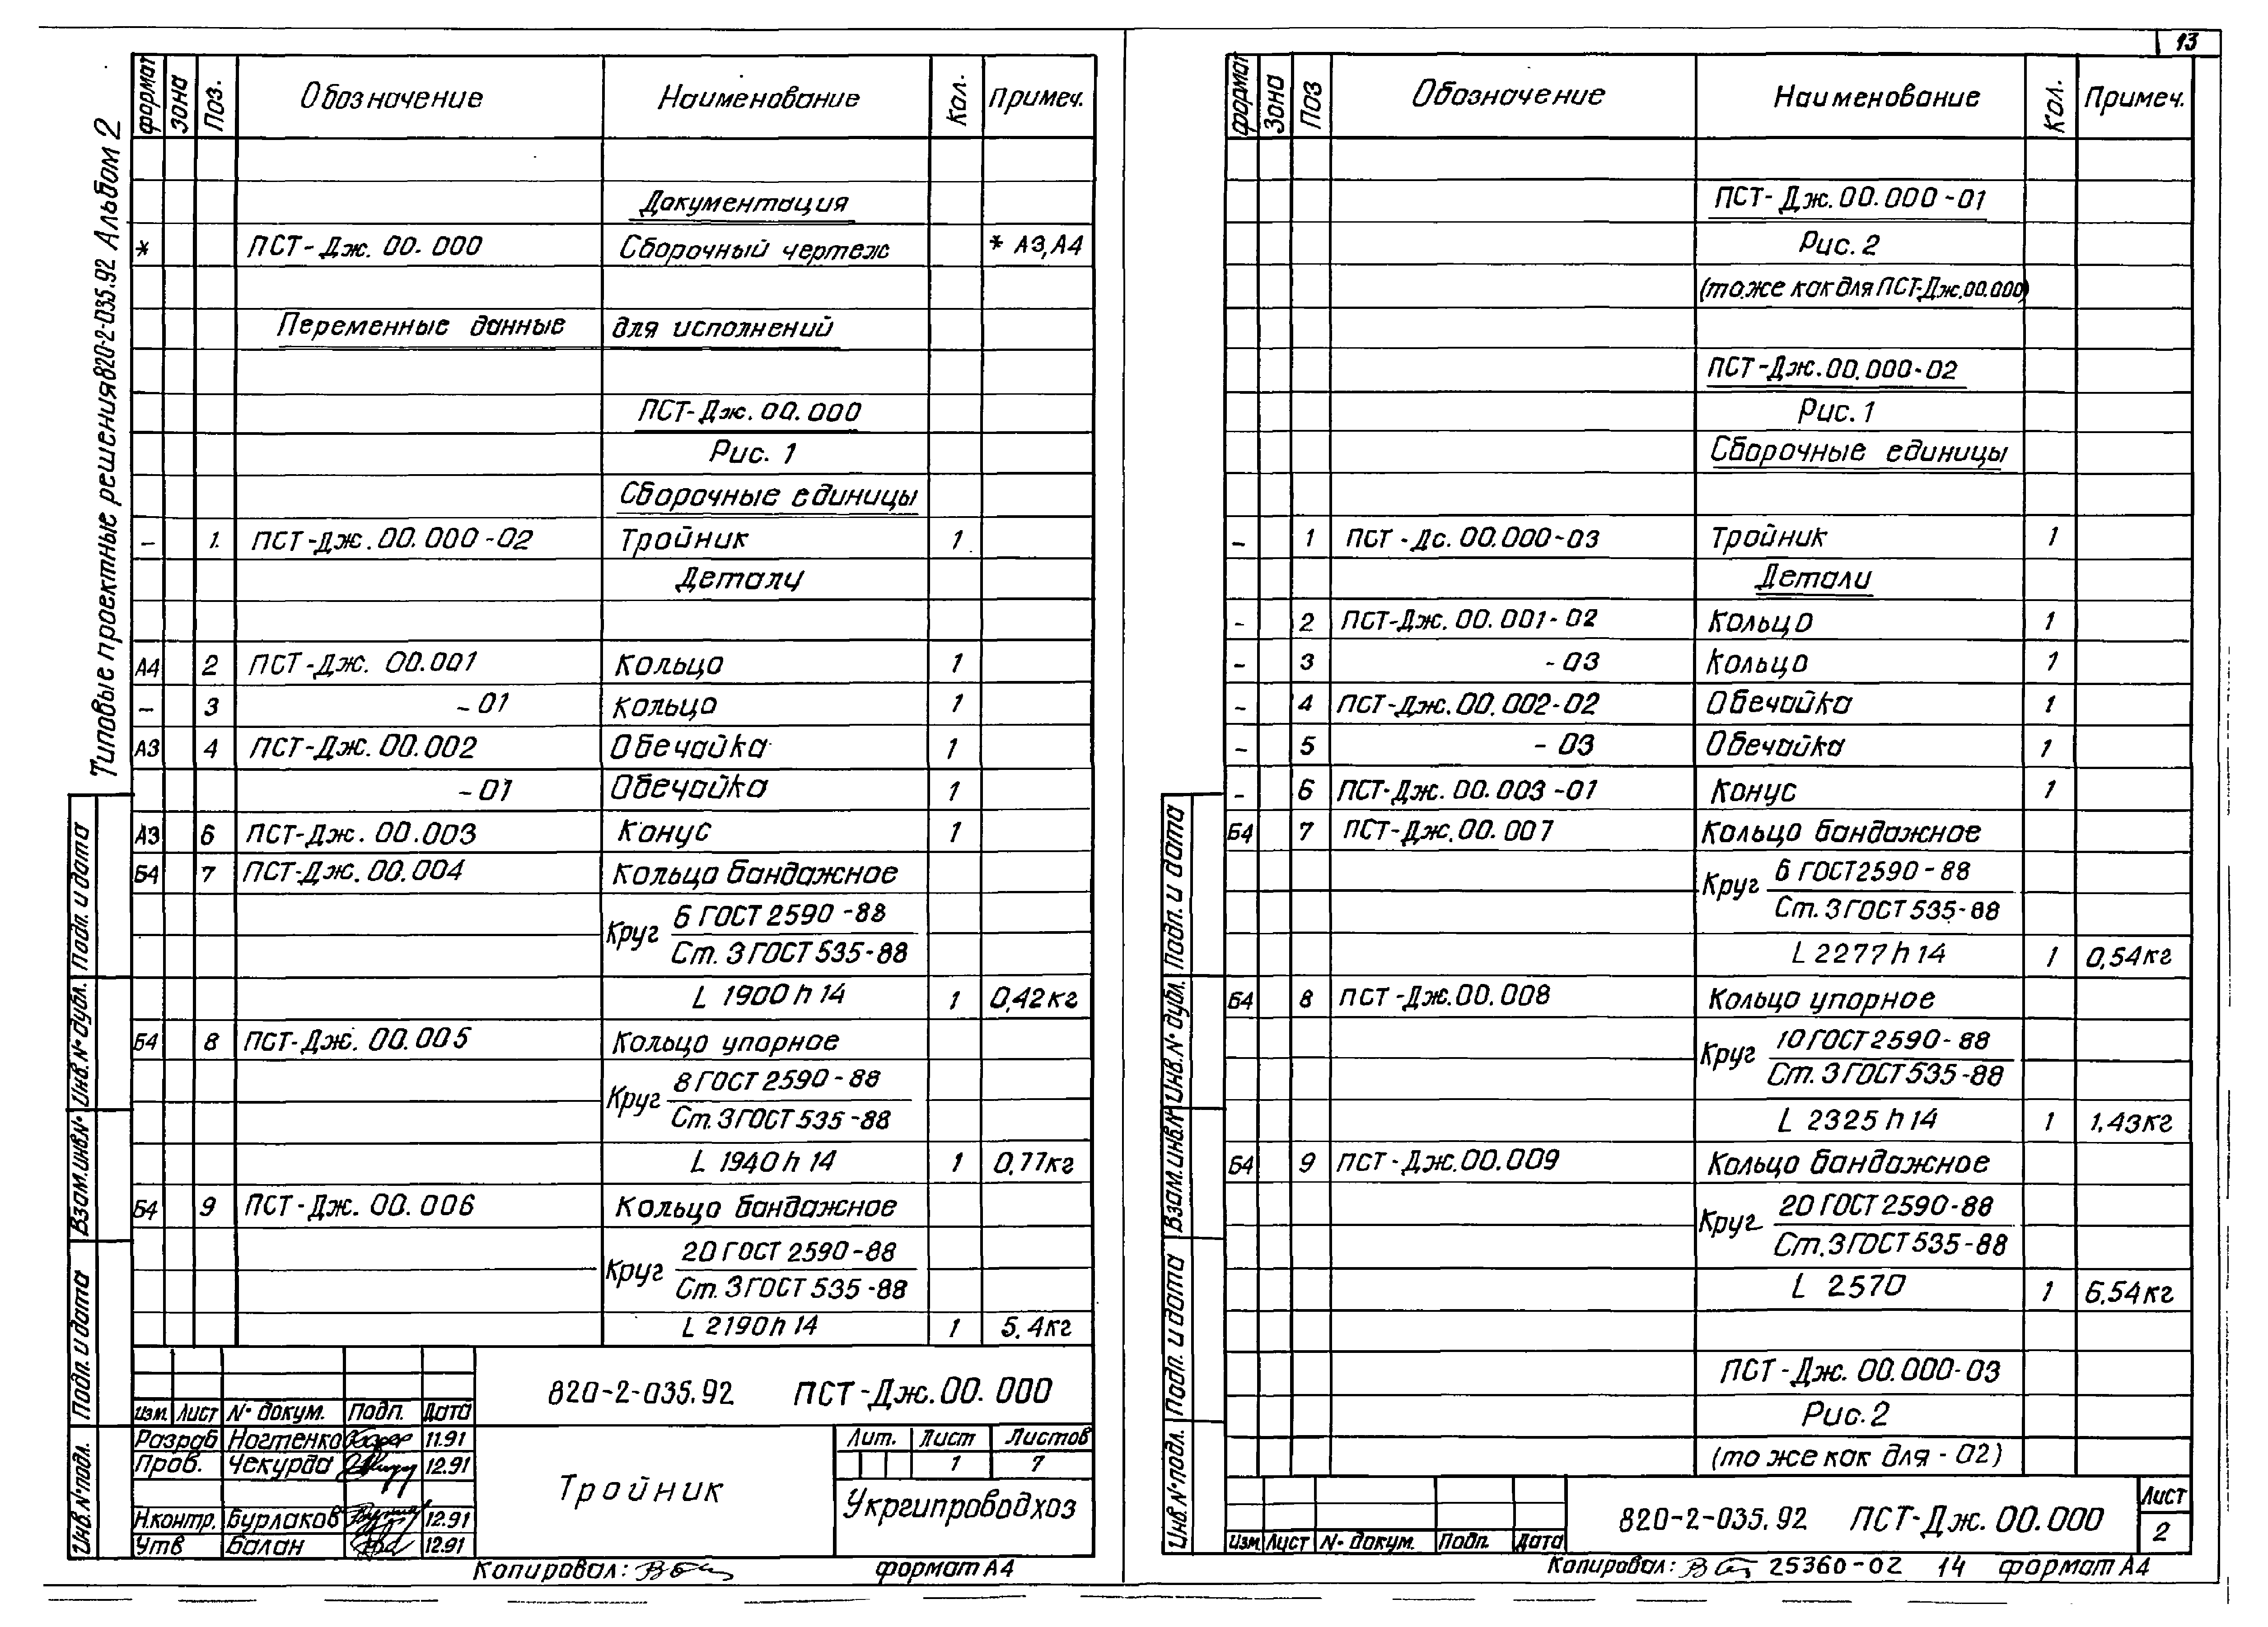 Типовые проектные решения 820-2-035.92 Альбом 2
формат Зона Поз. Обозначение Наименование Кол. Примеч.
Документация
* ПСТ-Дж. 00. 000 Сборочный чертеж * А3, А4
Переменные данные для исполнений
ПСТ-Дж. 00. 000
Рис. 1
Сборочные единицы
- 1. ПСТ-Дж. 00. 000-02 Тройник 1
Детали
А4 2 ПСТ-Дж. 00.001 Кольцо 1
- 3 -01 Кольцо 1
А3 4 ПСТ-Дж. 00.002 Обечайка 1
-01 Обечайка 1
А3 6 ПСТ-Дж. 00.003 Конус 1
Б4 7 ПСТ-Дж. 00.004 Кольцо бандажное
Круг 6 ГОСТ 2590-88
Ст. 3 ГОСТ 535-88
L 1900 h 14 1 0,42 кг
Б4 8 ПСТ-Дж. 00.005 Кольцо упорное
Круг 8 ГОСТ 2590-88
Ст. 3 ГОСТ 535-88
L 1940 h 14 1 0,77 кг
Б4 9 ПСТ-Дж. 00. 006 Кольцо бандажное
Круг 20 ГОСТ 2590-88
Ст. 3 ГОСТ 535-88
L 2190 h 14 1 5,4 кг
Подп. и дата
Инв. № дубл.
Взам. инв. №
Подп. и дата
Инв. № подл.
820-2-035.92 ПСТ-Дж. 00. 000
Изм. Лист № докум. Подп. Дата
Разраб Ногтенко 11.91
Пров. Чекурда 12.91
Н.контр. Бурлаков 12.91
Утв Балан 12.91
Тройник
Лит. Лист Листов
1 7
Укргипроводхоз
Копировал: формат А4
13
формат Зона Поз Обозначение Наименование Кол. Примеч.
ПСТ-Дж. 00. 000-01
Рис. 2
(то же как для ПСТ-Дж. 00.000)
ПСТ-Дж. 00. 000-02
Рис. 1
Сборочные единицы
- 1 ПСТ-Дс. 00.000-03 Тройник 1
Детали
- 2 ПСТ-Дж. 00. 001-02 Кольцо 1
- 3 -03 Кольцо 1
- 4 ПСТ-Дж. 00. 002-02 Обечайка 1
- 5 -03 Обечайка 1
- 6 ПСТ-Дж. 00. 003-01 Конус 1
Б4 7 ПСТ-Дж. 00. 007 Кольцо бандажное
Круг 6 ГОСТ 2590-88
Ст. 3 ГОСТ 535-88
L 2277 h 14 1 0,54 кг
Б4 8 ПСТ-Дж. 00. 008 Кольцо упорное
Круг 10 ГОСТ 2590-88
Ст. 3 ГОСТ 535-88
L 2325 h 14 1 1,43 кг
Б4 9 ПСТ-Дж. 00. 009 Кольцо бандажное
Круг 20 ГОСТ 2590-88
Ст. 3 ГОСТ 535-88
L 2570 1 6,54 кг
ПСТ-Дж. 00.000-03
Рис. 2
(то же как для -02)
Подп. и дата
Инв. № дубл.
Взам. инв. №
Подп. и дата
Инв. № подл.
820-2-035.92 ПСТ-Дж. 00.000
Лист
2
Изм Лист № докум. Подп. Дата
Копировал: 25360-02 14 формат А4